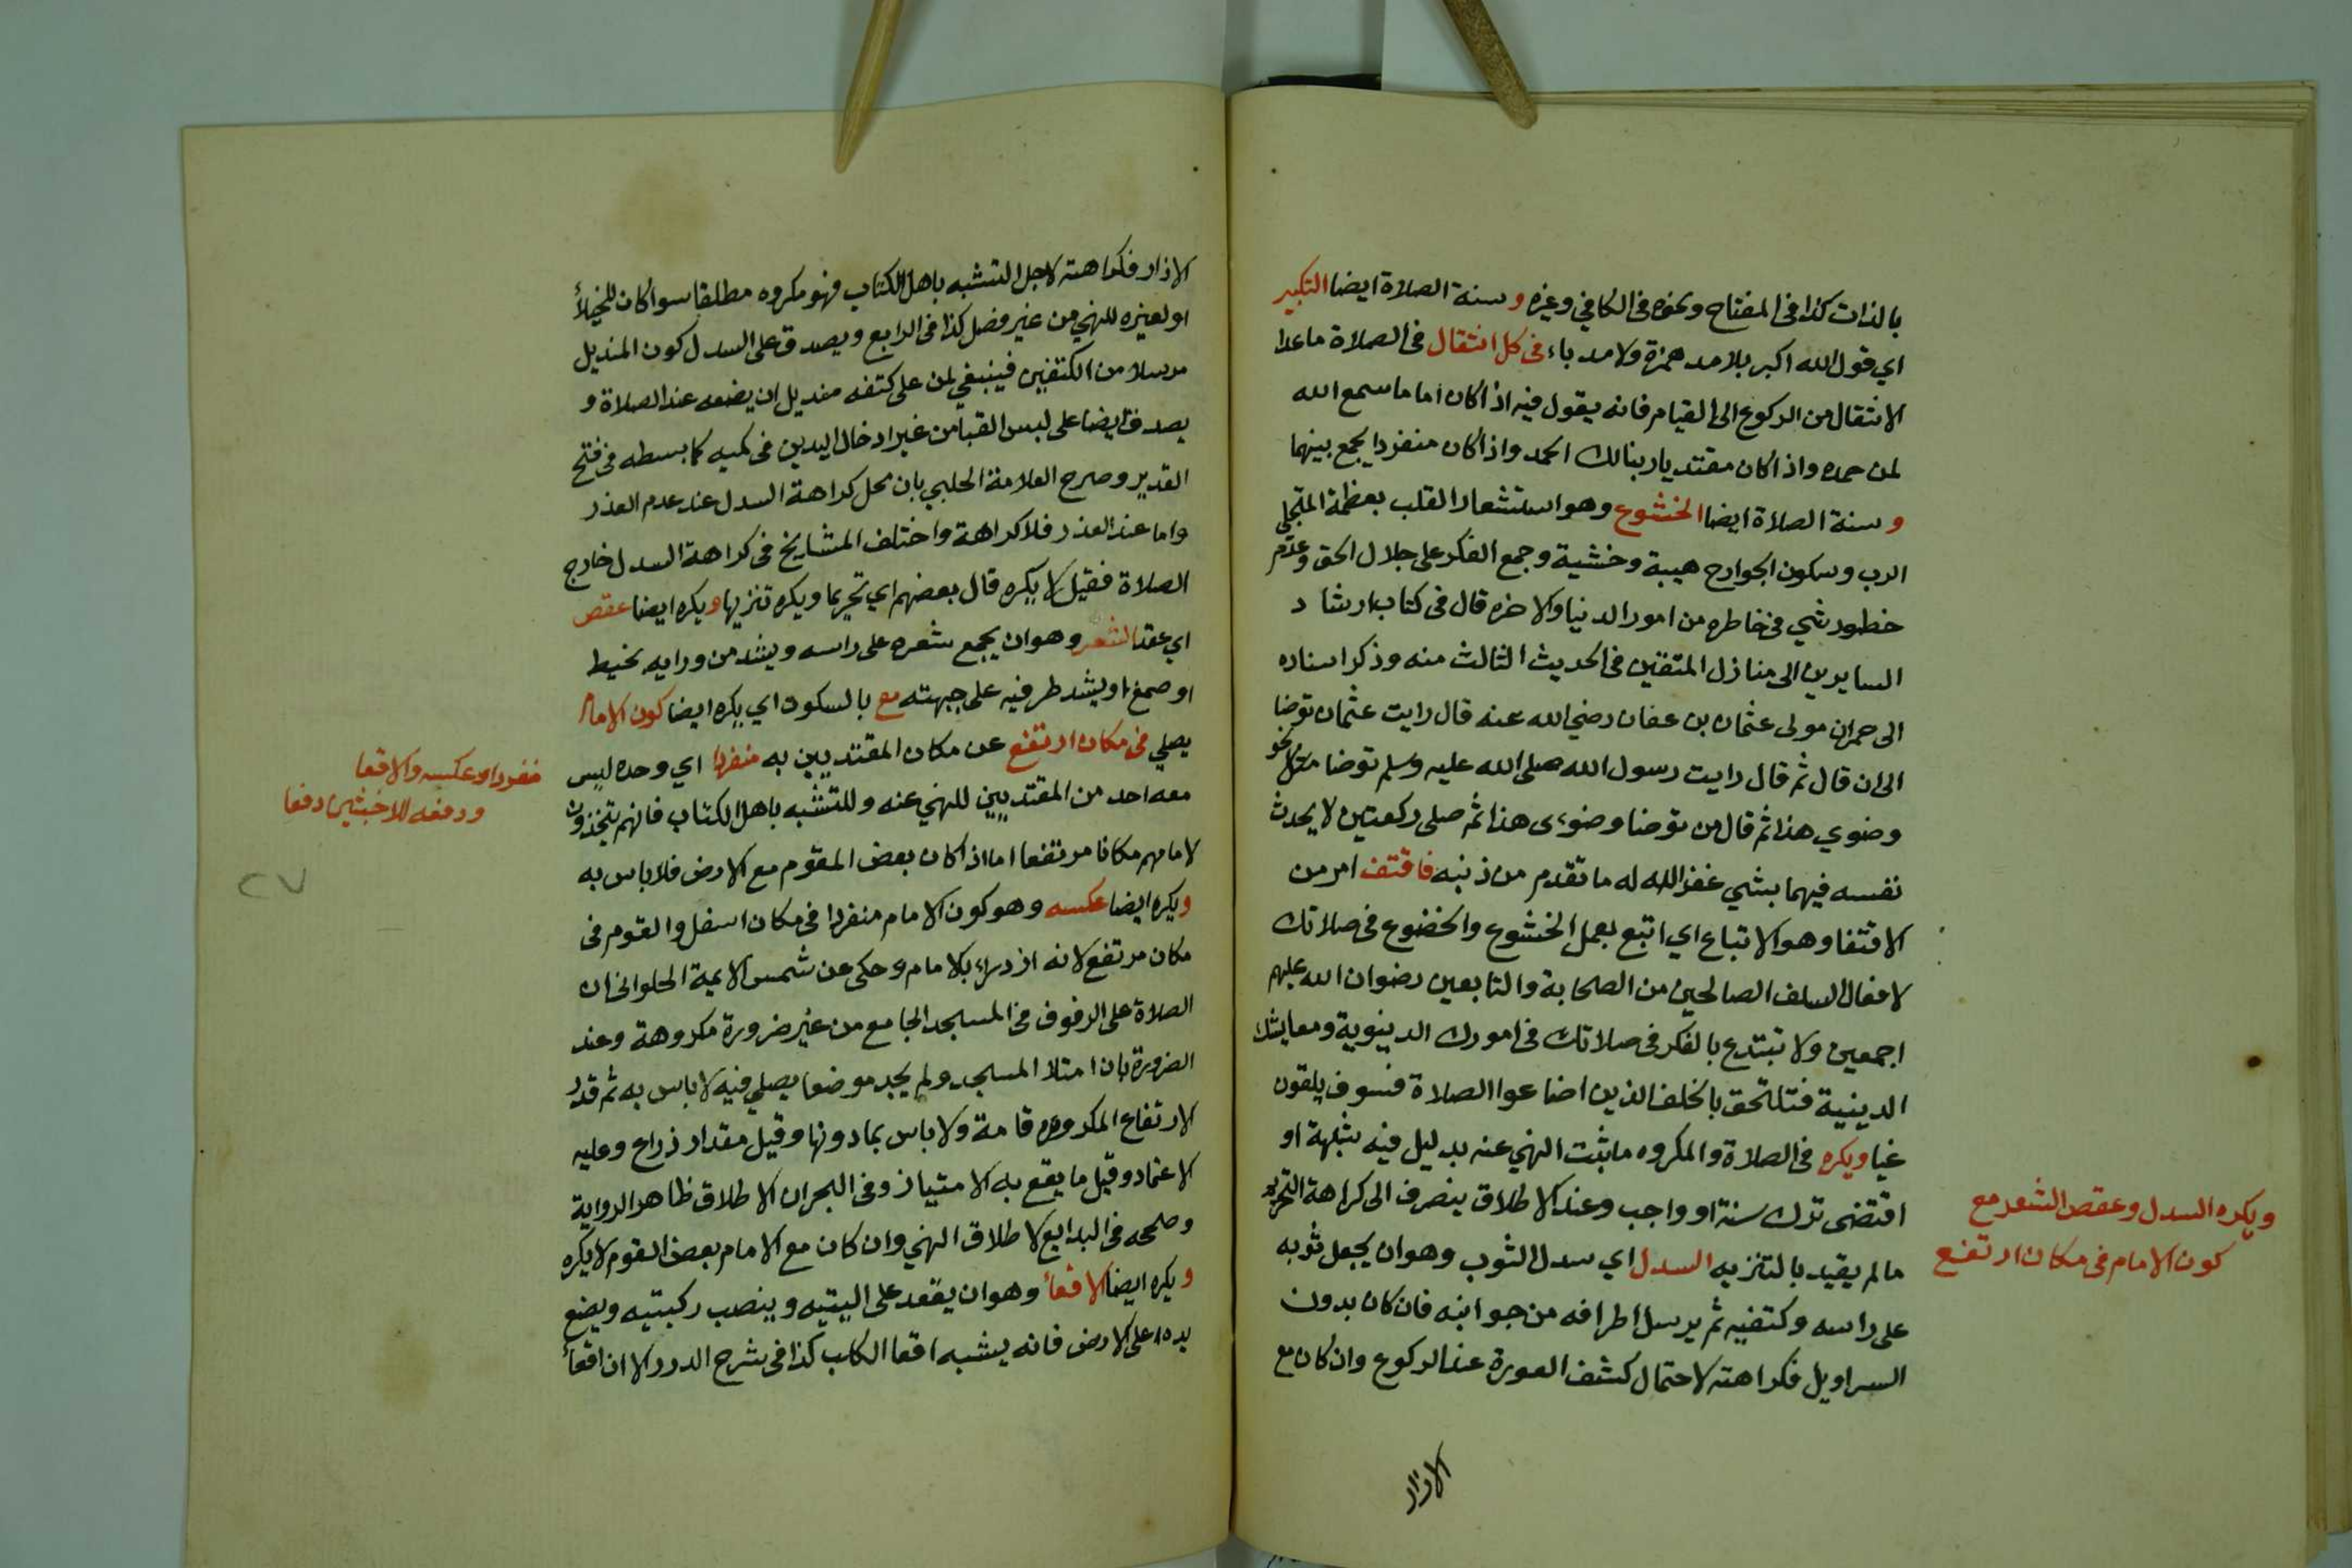 بالذات كذا في المفتاح ونحوه في الكافي وغيره وسنة الصلاة ايضا التكبير
اي قول الله اكبر بلا مد همزة ولا مد باء في كل انتقال في الصلاة ما عدا
الانتقال من الركوع الى القيام فانه يقول فيه اذا كان اماما سمع الله
لمن حمده واذا كان مقتديا ربنا لك الحمد واذا كان منفردا يجمع بينهما
وسنة الصلاة ايضا الخشوع وهو استشعار القلب بعظمة المتجلي
الرب وسكون الجوارح هيبة وخشية وجمع الفكر على جلال الحق وعدم
خطور شي في خاطره من امور الدنيا والاخره قال في كتاب ارشاد
السايرين الى منازل المتقين في الحديث الثالث منه وذكر اسناده
الى حمران مولى عثمان بن عفان رضي الله عنه قال رايت عثمان توضا
الى ان قال ثم قال رايت رسول الله صلى الله عليه وسلم توضا نحو
وضوي هذا ثم قال من توضا وضوءى هذا ثم صلى ركعتين لا يحدث
نفسه فيهما بشي غفر الله له ما تقدم من ذنبه فاقتف امر من
الاقتفا وهو الاتباع اي اتبع بعمل الخشوع والخضوع في صلاتك
لافعال السلف الصالحين من الصحابة والتابعين رضوان الله عليهم
اجمعين ولا تبتدع بالفكر في صلاتك في امورك الدينوية ومعايشك
الدينية فتلتحق بالخلف الذين اضاعوا الصلاة فسوف يلقون
غيا ويكره في الصلاة والمكروه ما ثبت النهي عنه بدليل فيه شبهة او
اقتضى ترك سنة او واجب وعند الاطلاق ينصرف الى كراهة التحريم
ما لم يقيد بالتنزيه السدل اي سدل الثوب وهو ان يجعل ثوبه
على راسه وكتفيه ثم يرسل اطرافه من جوانبه فان كان بدون
السراويل فكراهته لاحتمال كشف العورة عند الركوع وان كان مع
الازار
ويكره السدل وعقص الشعر مع
كون الامام في مكان ارتفع
الازار فكراهته لاجل التشبه باهل الكتاب فهو مكروه مطلقا سوا كان للخيلأ
او لغيره للنهي من غير فصل كذا في الرابع ويصدق على السدل كون المنديل
مرسلا من الكتفين فينبغي لمن على كتفه منديل ان يضعه عند الصلاة و
يصدق ايضا على لبس القبا من غير ادخال اليدين في كميه كما بسطه في فتح
القدير وصرح العلامة الحلبي بان محل كراهة السدل عند عدم العذر
واما عند العذر فلا كراهة واختلف المشايخ في كراهة السدل خارج
الصلاة فقيل لا يكره قال بعضهم اي تحريما ويكره تنزيها ويكره ايضا عقص
اي عقد الشعر وهو ان يجمع شعره على راسه ويشد من ورايه بخيط
او صمغ او يشد طرفيه على جبهته مع بالسكون اي يكره ايضا كون الامام
يصلي في مكان ارتفع عن مكان المقتديين به منفردا اي وحده ليس
معه احد من المقتديين للنهي عنه وللتشبه باهل الكتاب فانهم يتخذون
لامامهم مكانا مرتفعا اما اذا كان بعض المقوم مع الارض فلا باس به
ويكره ايضا عكسه وهو كون الامام منفردا في مكان اسفل والقوم في
مكان مرتفع لانه ازدراء بالامام وحكي عن شمس الايمة الحلواني ان
الصلاة على الرفوف في المسجد الجامع من غير ضرورة مكروهة وعند
الضرورة بان امتلا المسجد ولم يجد موضعا يصلي فيه لا باس به ثم قدر
الارتفاع المكروه قامة ولا باس بما دونها وقيل مقدار ذراع وعليه
الاعتماد وقيل ما يقع به الامتياز وفي البحر ان الاطلاق ظاهر الرواية
وصححه في البدايع لاطلاق النهي وان كان مع الامام بعض القوم لا يكره
ويكره ايضا الاقعأ وهو ان يقعد على اليتيه وينصب ركبتيه ويضع
يده على الارض فانه يشبه اقعا الكلب كذا في شرح الدرر الا ان اقعأ
منفردا وعكسه والاقعا
ودفعه للاخبثين دفعا
٢٧